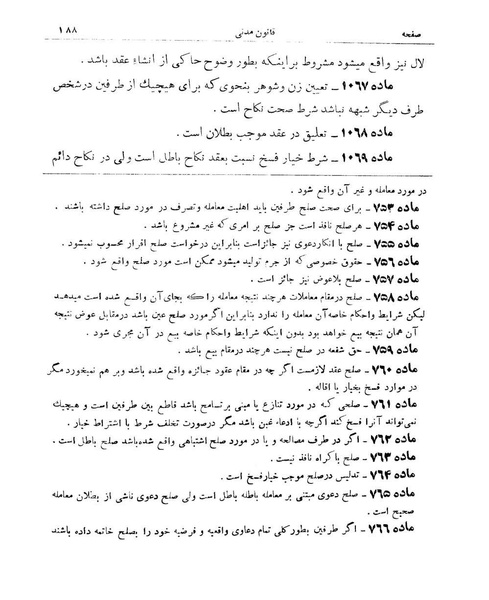 صفحه قانون مدنی ۱۸۸
لال نیز واقع میشود مشروط براینکه بطور وضوح حاکی از انشاء عقد باشد .
ماده ۱۰۶۷ – تعیین زن وشوهر بنحوی که برای هیچیك از طرفین درشخص
طرف دیگر شبهه نباشد شرط صحت نکاح است .
ماده ۱۰۶۸ – تعلیق در عقد موجب بطلان است .
ماده ۱۰۶۹ – شرط خیار فسخ نسبت بعقد نکاح باطل است ولی در نکاح دائم
در مورد معامله و غیر آن واقع شود .
ماده ۷۵۳ – برای صحت صلح طرفین باید اهلیت معامله وتصرف در مورد صلح داشته باشند .
ماده ۷۵۴ – هرصلح نافذ است جز صلح بر امری که غیر مشروع باشد .
ماده ۷۵۵ – صلح با انکاردعوی نیز جائزاست بنابراین درخواست صلح اقرار محسوب نمیشود .
ماده ۷۵۶ – حقوق خصوصی که از جرم تولید میشود ممکن است مورد صلح واقع شود .
ماده ۷۵۷ – صلح بلاعوض نیز جائز است .
ماده ۷۵۸ – صلح درمقام معاملات هرچند نتیجه معامله را که بجای آن واقع شده است میدهد
لیکن شرایط واحکام خاصه آن معامله را ندارد بنابراین اگرمورد صلح عین باشد درمقابل عوض نتیجه
آن همان نتیجه بیع خواهد بود بدون اینکه شرایط واحکام خاصه بیع در آن مجری شود .
ماده ۷۵۹ – حق شفعه در صلح نیست هرچند درمقام بیع باشد .
ماده ۷۶۰ – صلح عقد لازمست اگر چه در مقام عقود جائزه واقع شده باشد وبر هم نمیخورد مگر
در موارد فسخ بخیار یا اقاله .
ماده ۷۶۱ – صلحی که در مورد تنازع یا مبنی برتسامح باشد قاطع بین طرفین است و هیچیك
نمی‌تواند آنرا فسخ کند اگرچه با ادعاء غبن باشد مگر درصورت تخلف شرط یا اشتراط خیار .
ماده ۷۶۲ – اگر در طرف مصالحه و یا در مورد صلح اشتباهی واقع شده‌باشد صلح باطل است .
ماده ۷۶۳ – صلح باکراه نافذ نیست .
ماده ۷۶۴ – تدلیس درصلح موجب خیارفسخ است .
ماده ۷۶۵ – صلح دعوی مبتنی بر معامله باطله باطل است ولی صلح دعوی ناشی از بطلان معامله
صحیح است .
ماده ۷۶۶ – اگر طرفین بطورکلی تمام دعاوی واقعیه و فرضیه خود را بصلح خاتمه داده باشند